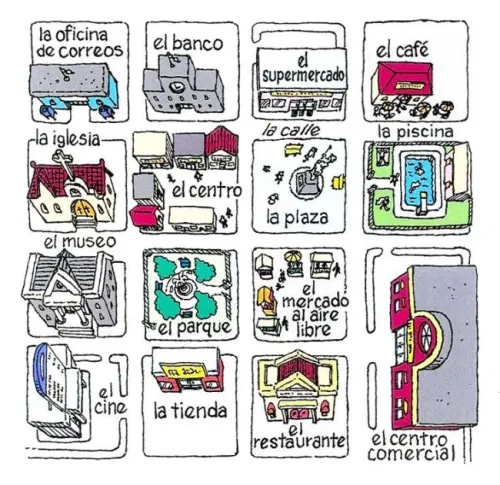 la oficina
de correos
el banco
el
supermercado
el café
la iglesia
el centro
la calle
la plaza
la piscina
el museo
el parque
el
mercado
al aire
libre
el
cine
la tienda
el
restaurante
el centro
comercial